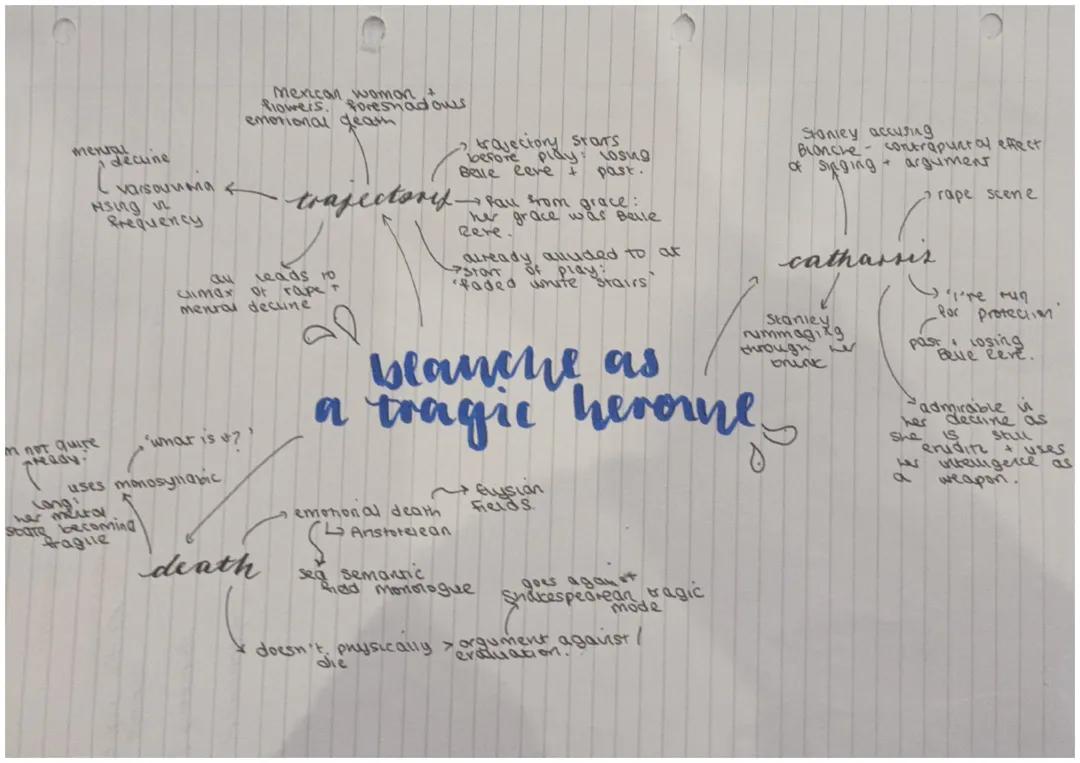 Mexican woman +
flowers. foreshadows
emotional death
mental
decline
varsouvina
rising in
frequency
trajectory
trajectory starts
before play: losing
Belle Reve + past.
Fall from grace:
her grace was Belle
Reve.
already alluded to at
start of play:
'faded white stairs'
all leads to
climax of rape +
mental decline
Stanley accusing
Blanche - contrapuntal effect
of singing + argument
rape scene
catharsis
'I've run
for protection'
past + losing
Belle Reve.
Stanley
rummaging
through her
trunk
admirable in
her decline as
she is still
erudite + uses
her intelligence as
a weapon.
blanche as
a tragic heroine
m not quite
ready.'
'what is it?'
uses monosyllabic
lang:
her mental
state becoming
fragile
death
emotional death
Elysian
Fields.
Aristotelean
sea semantic
field monologue
doesn't physically
die
> argument against /
evaluation.
goes against
Shakespearean tragic
mode